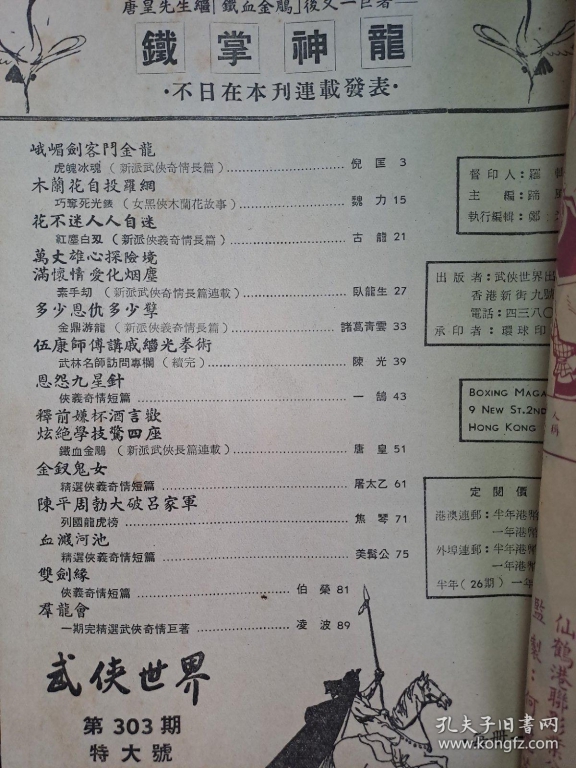 唐皇先生繼「鐵血金鵰」後又一巨著——
鐵掌神龍
·不日在本刊連載發表·
峨嵋劍客鬥金龍
虎魄冰魂(新派武俠奇情長篇) 倪匡 3
木蘭花自投羅網
巧奪死光錶(女黑俠木蘭花故事) 魏力 15
花不迷人人自迷
紅塵白刃(新派俠義奇情長篇) 古龍 21
萬丈雄心探險境
滿懷情愛化烟塵
素手刼(新派武俠奇情長篇連載) 臥龍生 27
多少恩仇多少孽
金鼎游龍(新派俠義奇情長篇) 諸葛青雲 33
伍康師傅講戚繼光拳術
武林名師訪問專欄(續完) 陳光 39
恩怨九星針
俠義奇情短篇 一鵠 43
釋前嫌杯酒言歡
炫絕學技驚四座
鐵血金鵰(新派武俠長篇連載) 唐皇 51
金釵鬼女
精選俠義奇情短篇 屠太乙 61
陳平周勃大破呂家軍
列國龍虎榜 焦琴 71
血濺河池
精選俠義奇情短篇 美髯公 75
雙劍緣
俠義奇情短篇 伯榮 81
羣龍會
一期完精選武俠奇情巨著 凌波 89
武俠世界
第303期
特大號
督印人:羅
主編:
執行編輯:鄭
出版者:武俠世界出
香港新街九號
電話:四三八〇
承印者:環球印
BOXING MAGA
9 NEW ST. 2ND
HONG KONG
定閱價
港澳連郵:半年港幣
一年港幣
外埠連郵:半年港幣
一年港幣
半年(26期)一年
仙鶴港聯影
監製:何
孔夫子旧书网
www.kongfz.com